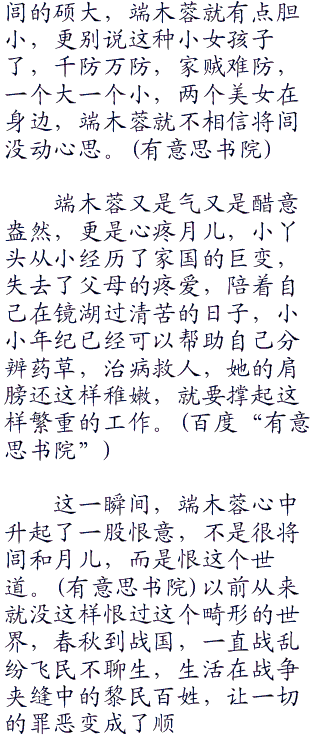 间的硕大，端木蓉就有点胆
小，更别说这种小女孩子
了，千防万防，家贼难防，
一个大一个小，两个美女在
身边，端木蓉就不相信将闾
没动心思。(有意思书院)
端木蓉又是气又是醋意
盎然，更是心疼月儿，小丫
头从小经历了家国的巨变，
失去了父母的疼爱，陪着自
己在镜湖过清苦的日子，小
小年纪已经可以帮助自己分
辨药草，治病救人，她的肩
膀还这样稚嫩，就要撑起这
样繁重的工作。(百度“有意
思书院”)
这一瞬间，端木蓉心中
升起了一股恨意，不是很将
闾和月儿，而是恨这个世
道。(有意思书院)以前从来
就没这样恨过这个畸形的世
界，春秋到战国，一直战乱
纷飞民不聊生，生活在战争
夹缝中的黎民百姓，让一切
的罪恶变成了顺